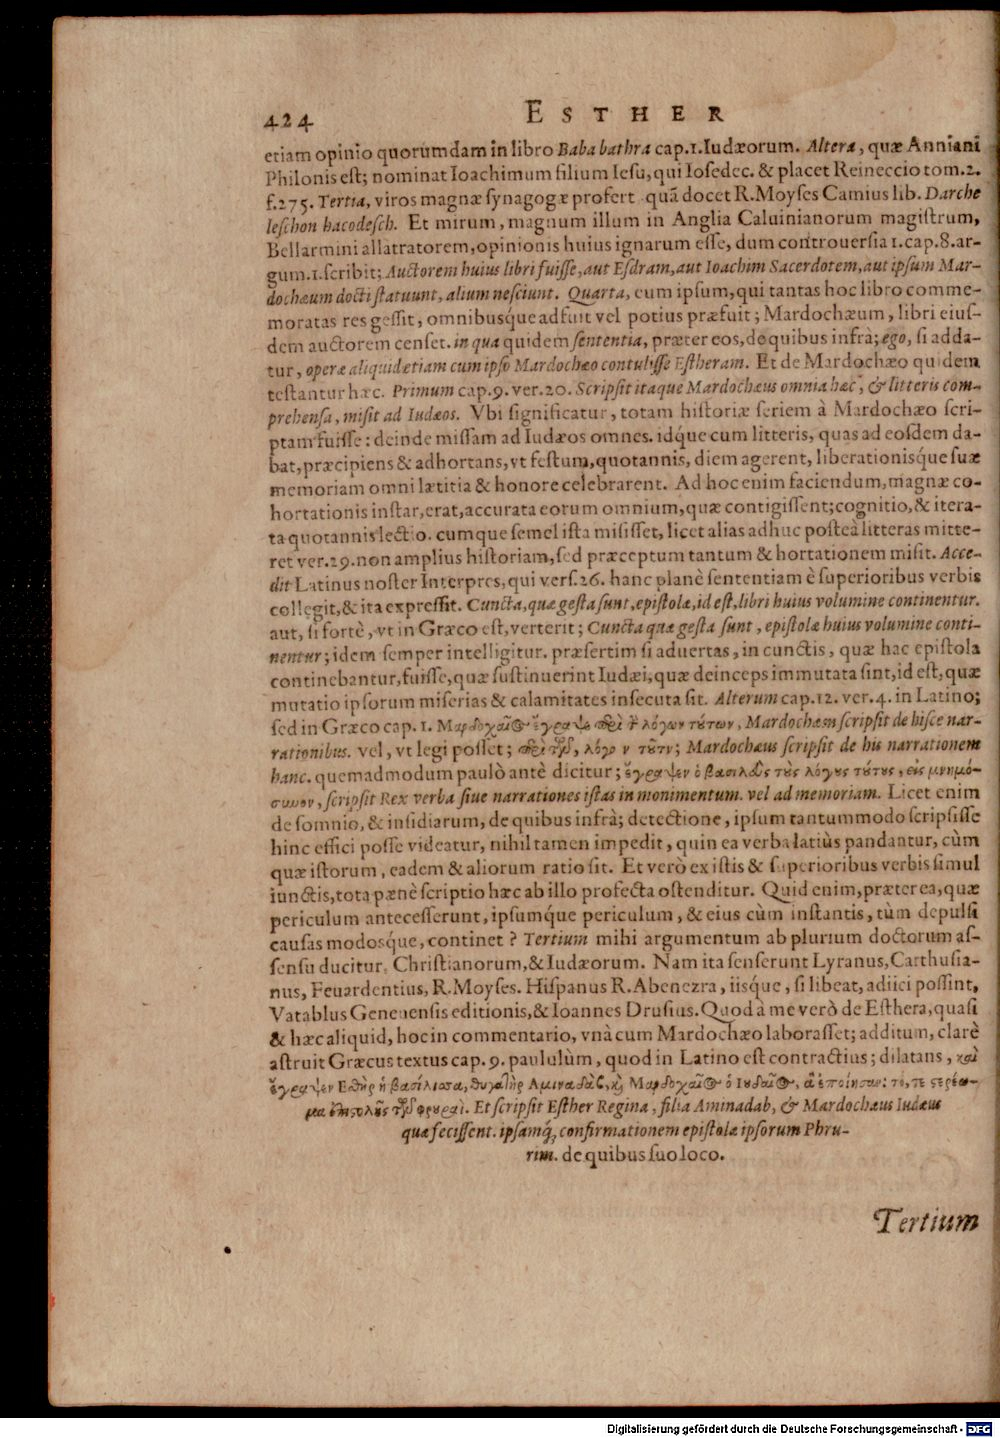 424 ESTHER
etiam opinio quorumdam in libro Baba bathra cap.1. Iudæorum. Altera, quæ Anniani
Philonis est; nominat Ioachimum filium Iesu, qui Iosedec. & placet Reineccio tom.2.
f.275. Tertia, viros magnæ synagogæ profert quã docet R. Moyses Camius lib. Darche
leschon hacodesch. Et mirum, magnum illum in Anglia Caluinianorum magistrum,
Bellarmini allatratorem, opinionis huius ignarum esse, dum controuersia 1. cap.8. ar-
gum.1. scribit; Auctorem huius libri fuisse, aut Esdram, aut Ioachim Sacerdotem, aut ipsum Mar-
dochæum docti statuunt, alium nesciunt. Quarta, eum ipsum, qui tantas hoc libro comme-
moratas res gessit, omnibusque adfuit vel potius præfuit; Mardochæum, libri eius-
dem auctorem censet. in qua quidem sententia, præter eos, de quibus infrà; ego, si adda-
tur, operæ aliquid etiam cum ipso Mardochæo contulisse Estheram. Et de Mardochæo quidem
testantur hæc. Primum cap.9. ver.20. Scripsit itaque Mardochæus omnia hæc, & litteris com-
prehensa, misit ad Iudæos. Vbi significatur, totam historiæ seriem à Mardochæo scri-
ptam fuisse: deinde missam ad Iudæos omnes. idque cum litteris, quas ad eosdem da-
bat, præcipiens & adhortans, vt festum, quotannis, diem agerent, liberationisque suæ
memoriam omni lætitia & honore celebrarent. Ad hoc enim faciendum, magnæ co-
hortationis instar, erat, accurata eorum omnium, quæ contigissent; cognitio, & itera-
ta quotannis lectio. cumque semel ista misisset, licet alias adhuc posteà litteras mitte-
ret ver.29. non amplius historiam, sed præceptum tantum & hortationem misit. Acce-
dit Latinus noster Interpres, qui vers.26. hanc planè sententiam è superioribus verbis
collegit, & ita expressit. Cuncta, quæ gesta sunt, epistolæ, id est, libri huius volumine continentur.
aut, si fortè, vt in Græco est, verterit; Cuncta quæ gesta sunt, epistolæ huius volumine conti-
nentur; idem semper intelligitur. præsertim si aduertas, in cunctis, quæ hac epistola
continebantur, fuisse, quæ sustinuerint Iudæi; quæ deinceps immutata sint, id est, quæ
mutatio ipsorum miserias & calamitates insecuta sit. Alterum cap.12. ver.4. in Latino;
sed in Græco cap. 1. Μαρδοχαῖος ἔγραψε περὶ τ λόγων τούτων, Mardochæus scripsit de hisce nar-
rationibus. vel, vt legi posset; περὶ τῶν, λόγον τοῦτν; Mardochæus scripsit de his narrationem
hanc. quemadmodum paulò antè dicitur; ἔγραψεν ὁ βασιλεὺς τοὺς λόγους τούτους, εἰς μνημό-
συνον, scripsit Rex verba siue narrationes istas in monimentum. vel ad memoriam. Licet enim
de somnio, & insidiarum, de quibus infrà; detectione, ipsum tantummodo scripsisse
hinc effici posse videatur, nihil tamen impedit, quin ea verba latiùs pandantur, cùm
quæ istorum, eadem & aliorum ratio sit. Et verò ex istis & superioribus verbis simul
iunctis, tota pænè scriptio hæc ab illo profecta ostenditur. Quid enim, præter ea, quæ
periculum antecesserunt, ipsumque periculum, & eius cùm instantis, tùm depulsi
causas modosque, continet? Tertium mihi argumentum ab plurium doctorum as-
sensu ducitur, Christianorum, & Iudæorum. Nam ita senserunt Lyranus, Carthusia-
nus, Feuardentius, R. Moyses. Hispanus R. Abenezra, iisque, si libeat, adiici possint,
Vatablus Geneuensis editionis, & Ioannes Drusius. Quod à me verò de Esthera, quasi
& hæc aliquid, hoc in commentario, vnà cum Mardochæo laborasset; additum, clarè
astruit Græcus textus cap. 9. paululùm, quod in Latino est contractius; dilatans, καὶ
ἔγραψεν Εσθὴρ ἡ βασίλισσα, θυγάτηρ Αμιναδὰβ, κ Μαρδοχαῖος ὁ Ιουδαῖος, ἃ ἐποίησαν: τό, τε στερέω-
μα ἐπιστολῆς τῶν φρουραί. Et scripsit Esther Regina, filia Aminadab, & Mardochæus Iudæus
quæ fecissent. ipsamq; confirmationem epistolæ ipsorum Phru-
rim. de quibus suo loco.
Tertium
Digitalisierung gefördert durch die Deutsche Forschungsgemeinschaft - DFG